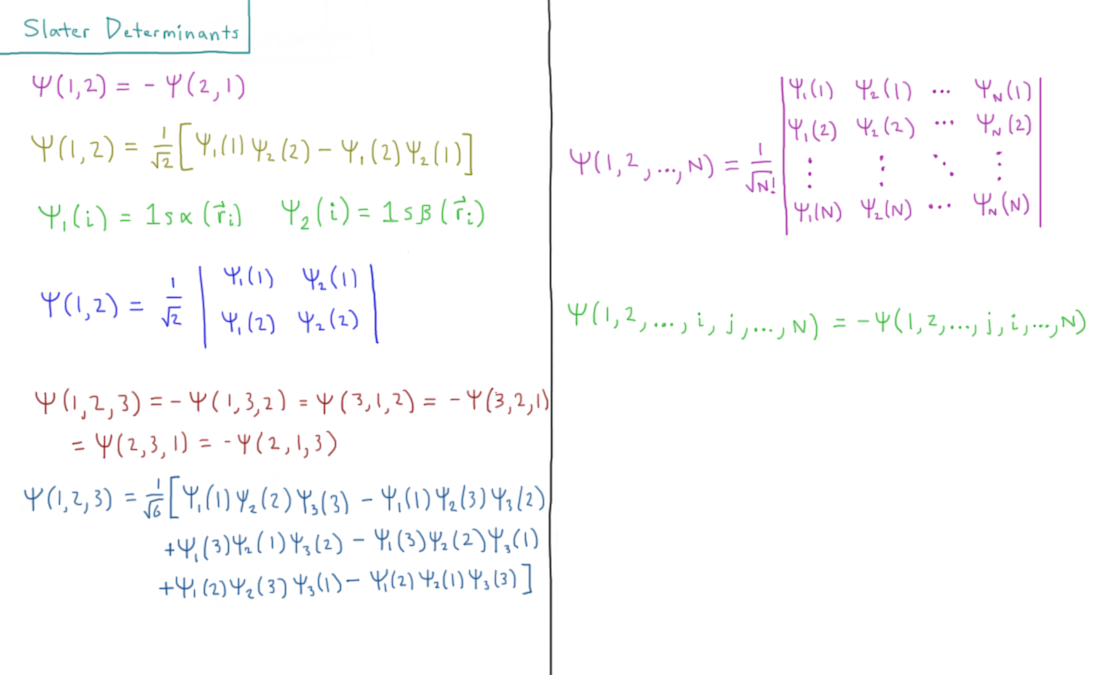 Slater Determinants
Ψ(1,2) = - Ψ(2,1)
Ψ(1,2) = 1/√2 [Ψ₁(1)Ψ₂(2) - Ψ₁(2)Ψ₂(1)]
Ψ₁(i) = 1sα(r⃗ᵢ) Ψ₂(i) = 1sβ(r⃗ᵢ)
Ψ(1,2) = 1/√2 | Ψ₁(1) Ψ₂(1) |
| Ψ₁(2) Ψ₂(2) |
Ψ(1,2,3) = -Ψ(1,3,2) = Ψ(3,1,2) = -Ψ(3,2,1)
= Ψ(2,3,1) = -Ψ(2,1,3)
Ψ(1,2,3) = 1/√6 [Ψ₁(1)Ψ₂(2)Ψ₃(3) - Ψ₁(1)Ψ₂(3)Ψ₃(2)
+Ψ₁(3)Ψ₂(1)Ψ₃(2) - Ψ₁(3)Ψ₂(2)Ψ₃(1)
+Ψ₁(2)Ψ₂(3)Ψ₃(1) - Ψ₁(2)Ψ₂(1)Ψ₃(3)]
| Ψ₁(1) Ψ₂(1) ... Ψ_N(1) |
| Ψ₁(2) Ψ₂(2) ... Ψ_N(2) |
Ψ(1,2,...,N) = 1/√N! | ⋮ ⋮ ⋱ ⋮ |
| Ψ₁(N) Ψ₂(N) ... Ψ_N(N) |
Ψ(1,2,...,i,j,...,N) = -Ψ(1,2,...,j,i,...,N)